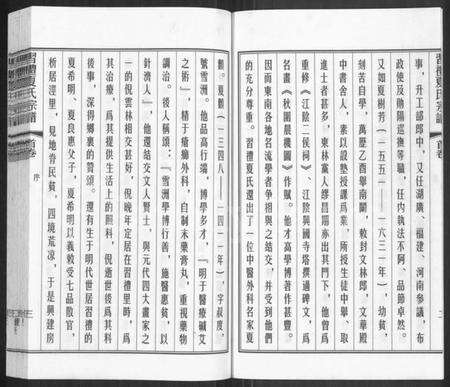 習禮夏氏宗譜
首卷
二
事，升工部郎中，又任湖廣、福建、河南參議，布
政使及勛陽巡撫等職，任內執法不阿，品節卓然。
又如夏樹芳（一五五一——一六三一年），幼貧，
刻苦自學，萬歷乙酉舉南闈，敕封文林郎、文華殿
中書舍人，素以設塾授課爲業，所授生徒中舉、取
進士者甚多，東林黨人繆昌期亦出其門下，他曾爲
重修《江陰二侯祠》、江陰興國寺塔撰過碑文，爲
名畫《秋圃晨機圖》作賦。他才高學博著作甚豐。
因而東南各地名流學者爭相與之結交，并受到他們
的充分尊重。習禮夏氏還出了一位中醫外科名家夏
顴。夏顴（一三四八——一四一一年），字叔度，
號雪洲。他品高行端，博學多才，『明于醫療碱艾
之術』，精于瘡瘍外科，自制末藥膏丸，重視藥物
調治。後人稱頌：『雪洲學博行善，施醫惠貧，以
針濟人』，他還結交文人賢士，與元代四大畫家之
一的倪雲林相交甚好，倪晚年定居在習禮里時，爲
其治療，爲其提供生活上的照料，倪逝世後爲其料
後事，深得鄉裏的贊頌。還有生于明代世居習禮的
夏希明、夏良惠父子，夏希明以義敕受七品散官，
析居涇里，見地眷民貧，四境荒凉，于是興建房
習禮夏氏宗譜
首卷
序